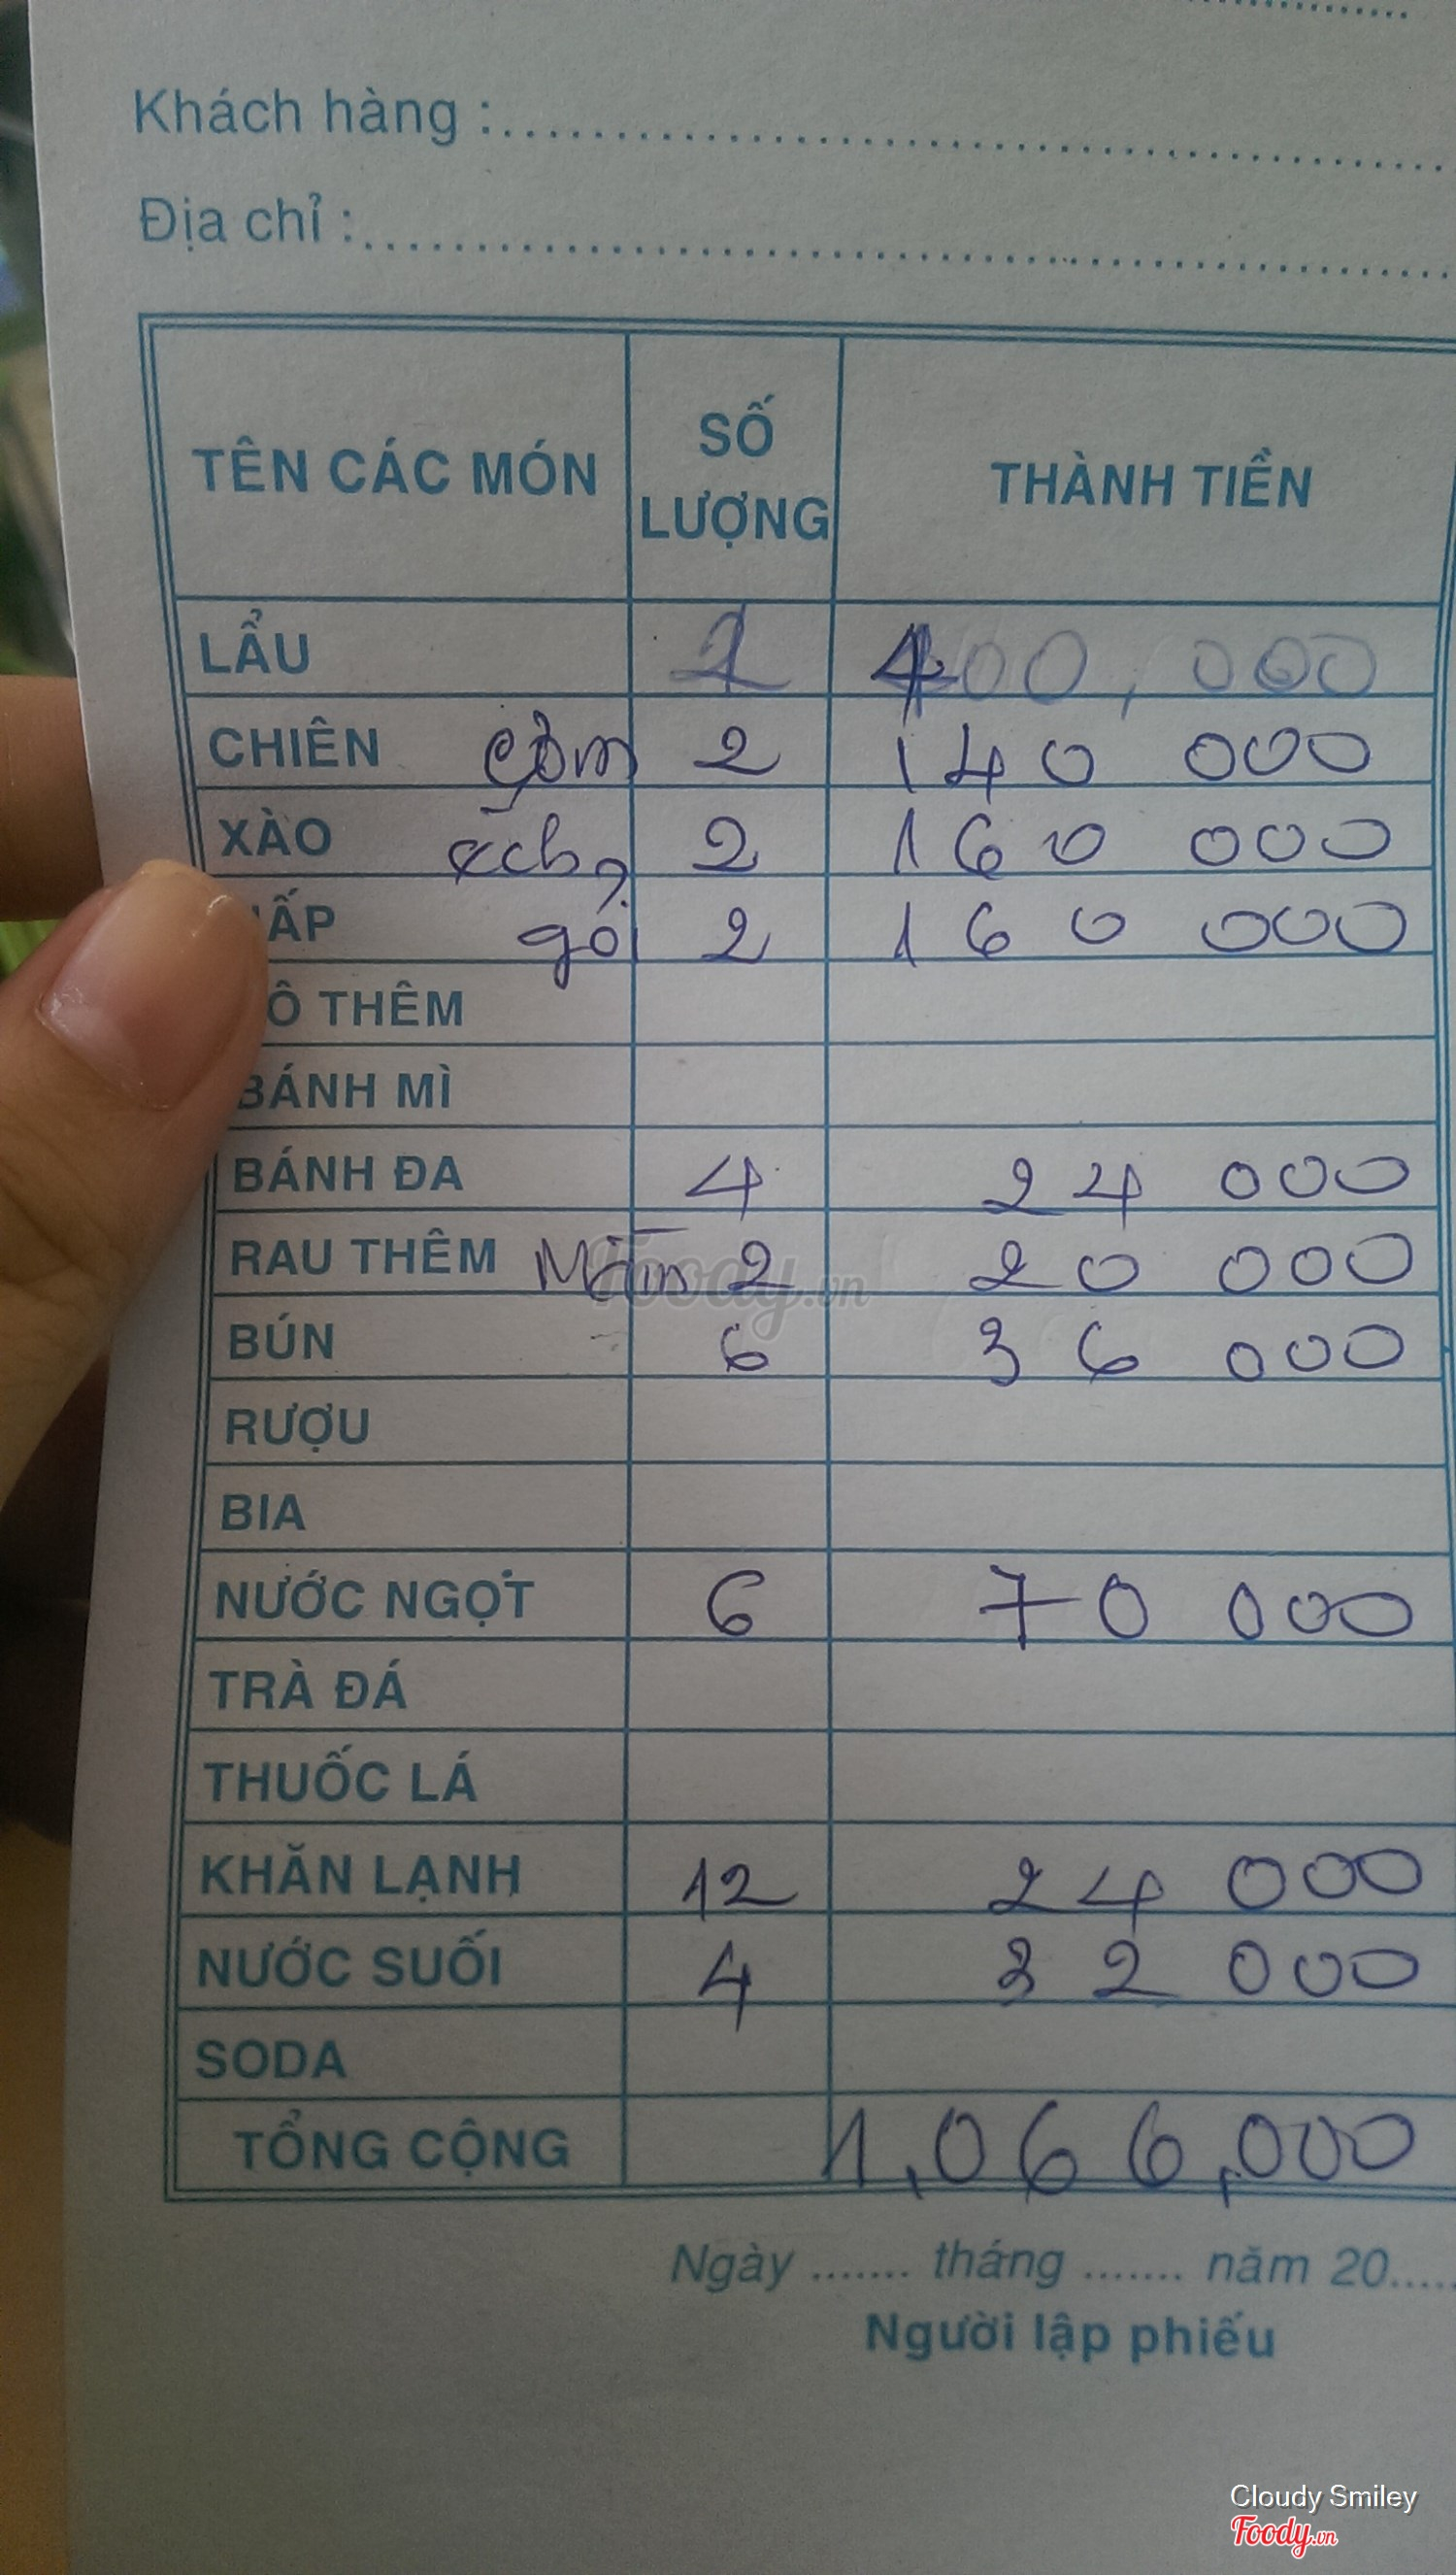 Khách hàng :
Địa chỉ :
TÊN CÁC MÓN SỐ LƯỢNG THÀNH TIỀN
LẨU 400,000
CHIÊN cơm 2 140 000
XÀO ếch 2 160 000
ẤP gỏi 2 160 000
Ô THÊM
BÁNH MÌ
BÁNH ĐA 4 24 000
RAU THÊM 2 20 000
BÚN 6 36 000
RƯỢU
BIA
NƯỚC NGỌT 6 70 000
TRÀ ĐÁ
THUỐC LÁ
KHĂN LẠNH 12 24 000
NƯỚC SUỐI 4 32 000
SODA
TỔNG CỘNG 1,066,000
Ngày ....... tháng ....... năm 20.....
Người lập phiếu
Foody.vn
Cloudy Smiley
Foody.vn